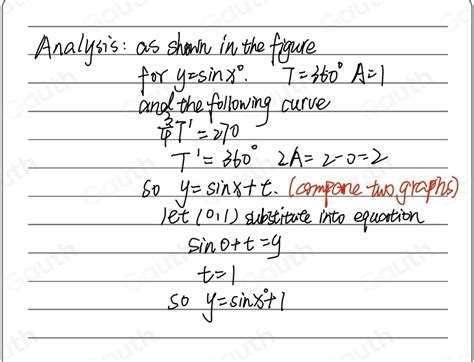 Analysis: as shown in the figure
for y=sinx°. T=360° A=1
and the following curve
3/4 T' = 270
T' = 360° 2A = 2-0=2
so y=sinx+t. (compare two graphs)
let (0,1) substitute into equation
sin0+t=y
t=1
so y=sinx°+1